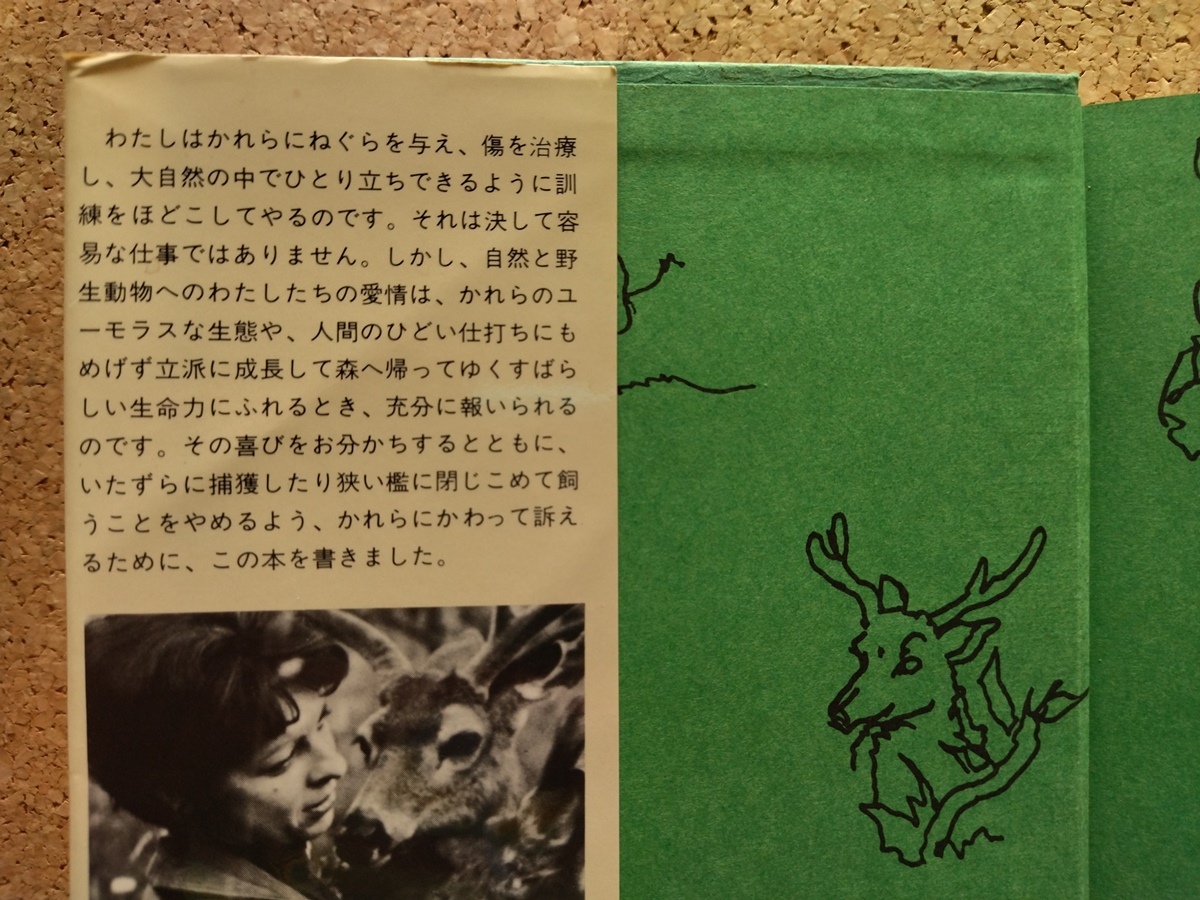 わたしはかれらにねぐらを与え、傷を治療
し、大自然の中でひとり立ちできるように訓
練をほどこしてやるのです。それは決して容
易な仕事ではありません。しかし、自然と野
生動物へのわたしたちの愛情は、かれらのユ
ーモラスな生態や、人間のひどい仕打ちにも
めげず立派に成長して森へ帰ってゆくすばら
しい生命力にふれるとき、充分に報いられる
のです。その喜びをお分かちするとともに、
いたずらに捕獲したり狭い檻に閉じこめて飼
うことをやめるよう、かれらにかわって訴え
るために、この本を書きました。